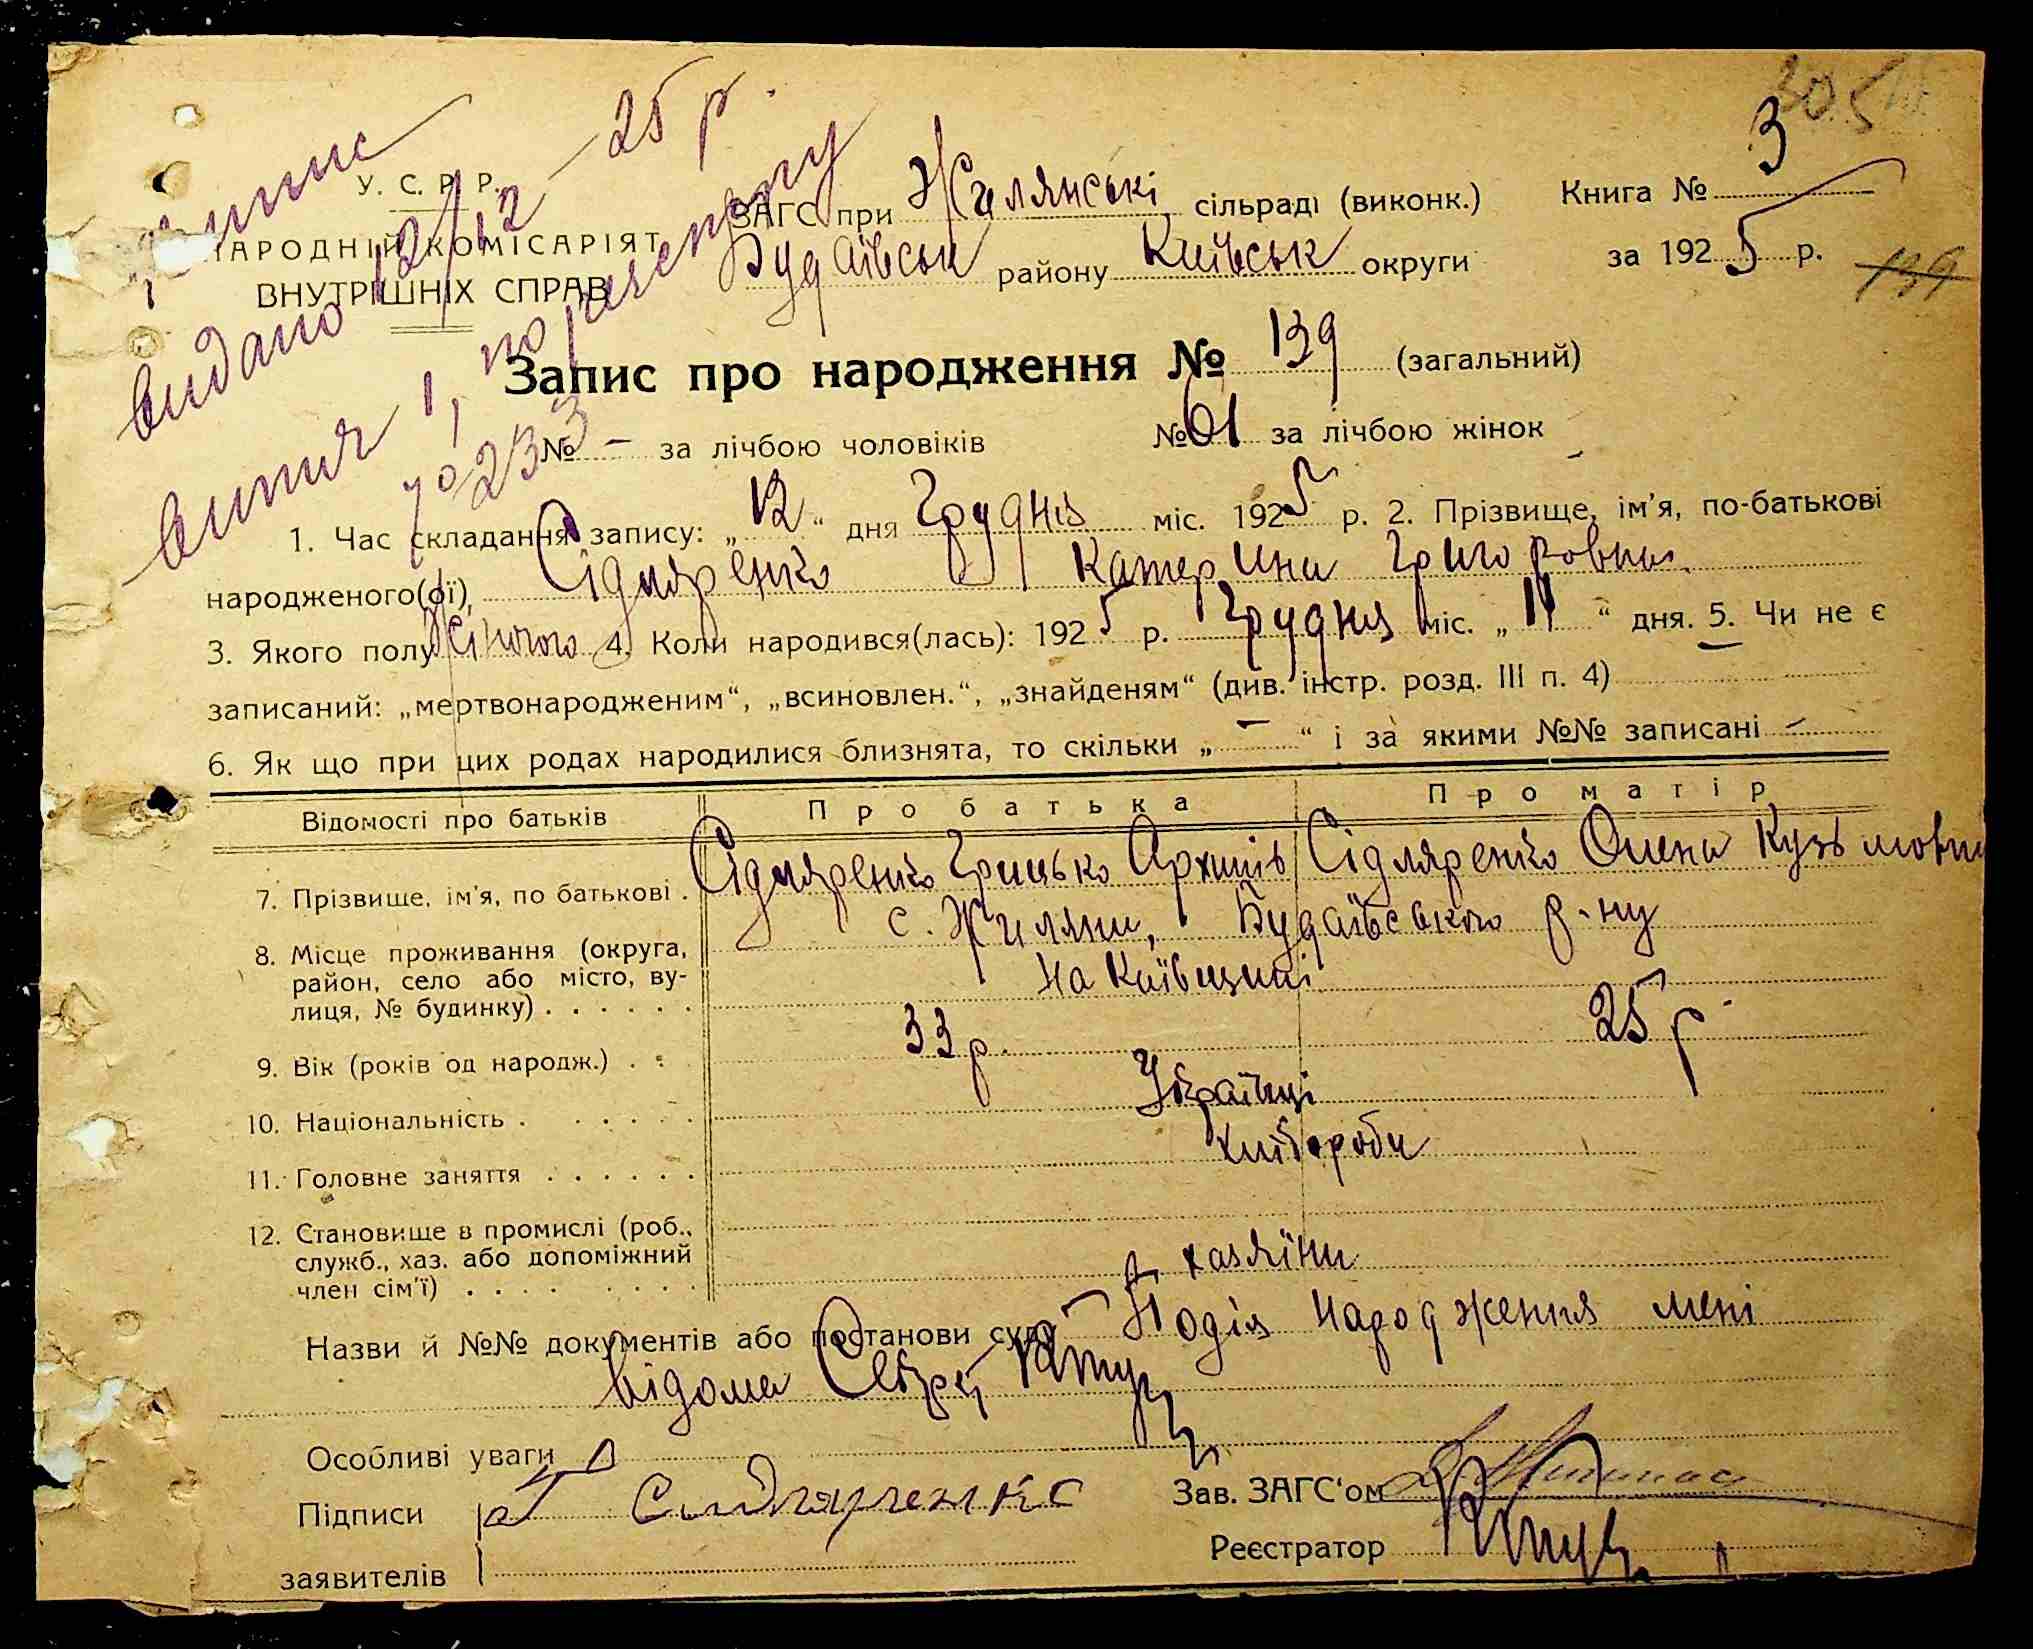 видано 12/12—25 р.
У. С. Р. Р.
НАРОДНІЙ КОМІСАРІЯТ
ВНУТРІШНІХ СПРАВ
ЗАГС при Жилянські сільраді (виконк.) Книга № 3
Будаївськ району Київськ округи за 1925 р.
139
Запис про народження № 139 (загальний)
№ – за лічбою чоловіків № 61 за лічбою жінок
1. Час складання запису: „12“ дня Грудня міс. 1925 р. 2. Прізвище, ім'я, по-батькові
народженого(ої), Сідляренко Катерина Григоровна
3. Якого полу Жіночого 4. Коли народився(лась): 1925 р. Грудня міс. „11“ дня. 5. Чи не є
записаний: „мертвонародженим“, „всиновлен.“, „знайденям“ (див. інстр. розд. III п. 4)
6. Як що при цих родах народилися близнята, то скільки „–“ і за якими №№ записані –
Відомості про батьків Про батька Про матір
7. Прізвище, ім'я, по батькові . Сідляренко Грицько Архипів Сідляренко Олена Кузьмовна
8. Місце проживання (округа, с. Жиляни, Будаївського р-ну
район, село або місто, ву- на Київщині
лиця, № будинку) . . . . . .
9. Вік (років од народж.) . . 33 р. 25 р.
10. Національність . . . . . . Українці
11. Головне заняття . . . . . . Хлібороби
12. Становище в промислі (роб.,
служб., хаз. або допоміжний хазяїни
член сім'ї) . . . . . . . .
Назви й №№ документів або постанови суду Подія народження мені
відома Секрет.
Особливі уваги
Підписи Сидляренко Зав. ЗАГС'ом
заявителів Реєстратор